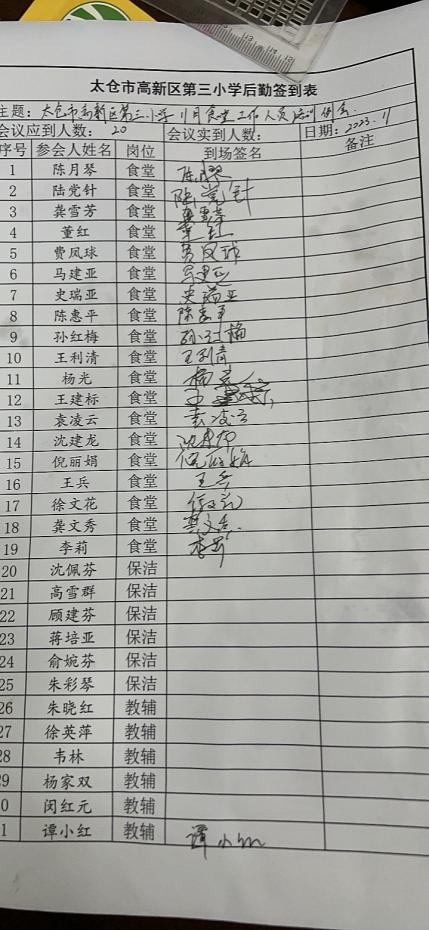 太仓市高新区第三小学后勤签到表
主题：太仓市高新区第三小学11月食堂工作人员培训例会.
会议应到人数： 20 会议实到人数： 日期：2023.11
序号 参会人姓名 岗位 到场签名 备注
1 陈月琴 食堂 陈月琴
2 陆党针 食堂 陆党针
3 龚雪芳 食堂 龚雪芳
4 董红 食堂 董红
5 费凤球 食堂 费凤球
6 马建亚 食堂 马建亚
7 史瑞亚 食堂 史瑞亚
8 陈惠平 食堂 陈惠平
9 孙红梅 食堂 孙红梅
10 王利清 食堂 王利清
11 杨光 食堂 杨光
12 王建标 食堂 王
13 袁凌云 食堂 袁凌云
14 沈建龙 食堂 沈建龙
15 倪丽娟 食堂 倪丽娟
16 王兵 食堂 王兵
17 徐文花 食堂 徐文花
18 龚文秀 食堂 龚文秀.
19 李莉 食堂 李莉
20 沈佩芬 保洁
21 高雪群 保洁
22 顾建芬 保洁
23 蒋培亚 保洁
24 俞婉芬 保洁
25 朱彩琴 保洁
26 朱晓红 教辅
27 徐英萍 教辅
28 韦林 教辅
29 杨家双 教辅
0 闵红元 教辅
1 谭小红 教辅 谭小红